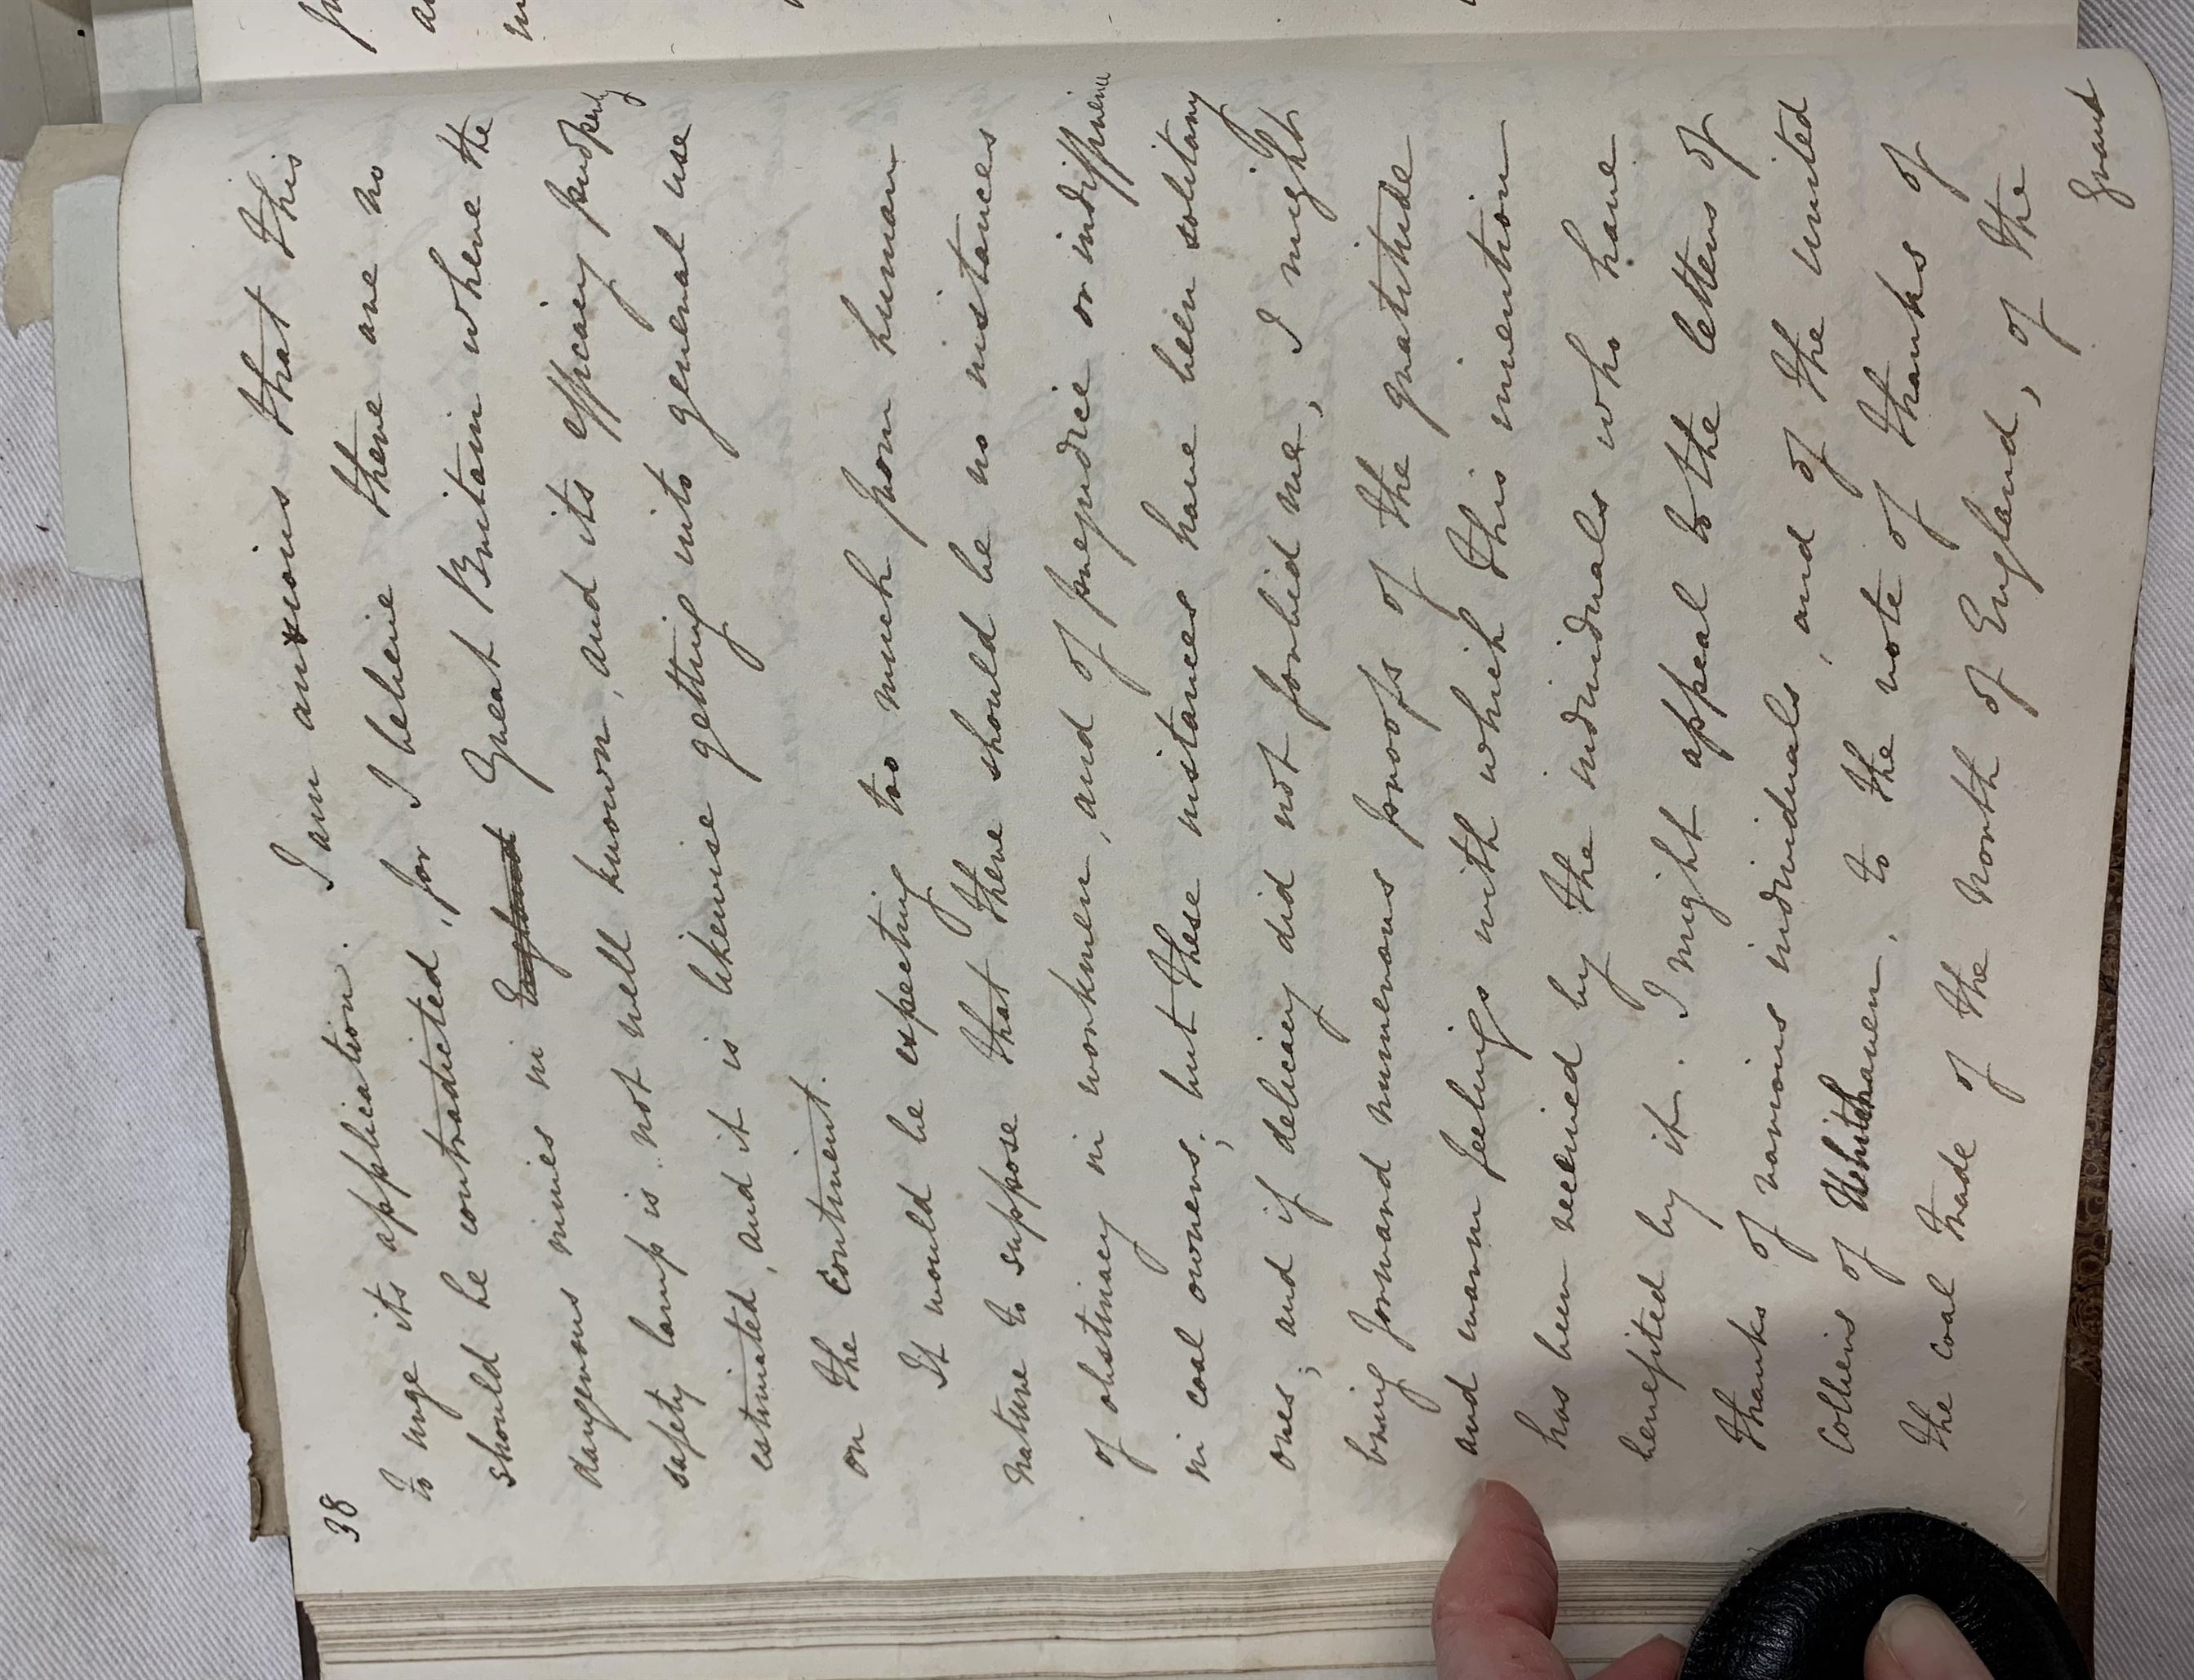 38
to urge its application. I am anxious that this
should be contradicted, for I believe there are no
dangerous mines in England Great Britain where the
safety lamp is not well known, and its efficacy properly
estimated, and it is likewise getting into general use
on the Continent.
It would be expecting too much from human
nature to suppose that there should be no instances
of obstinacy in workmen, and of prejudice or indifference
in coal owners; but these instances have been solitary
ones; and if delicacy did not forbid me, I might
bring forward numerous proofs of the gratitude
and warm feelings with which this invention
has been received by the individuals who have
benefited by it. I might appeal to the letters of
thanks of various individuals, and of the united
Colliers of Whitehaven, to the vote of thanks of
the coal trade of the North of England, of the
Grand